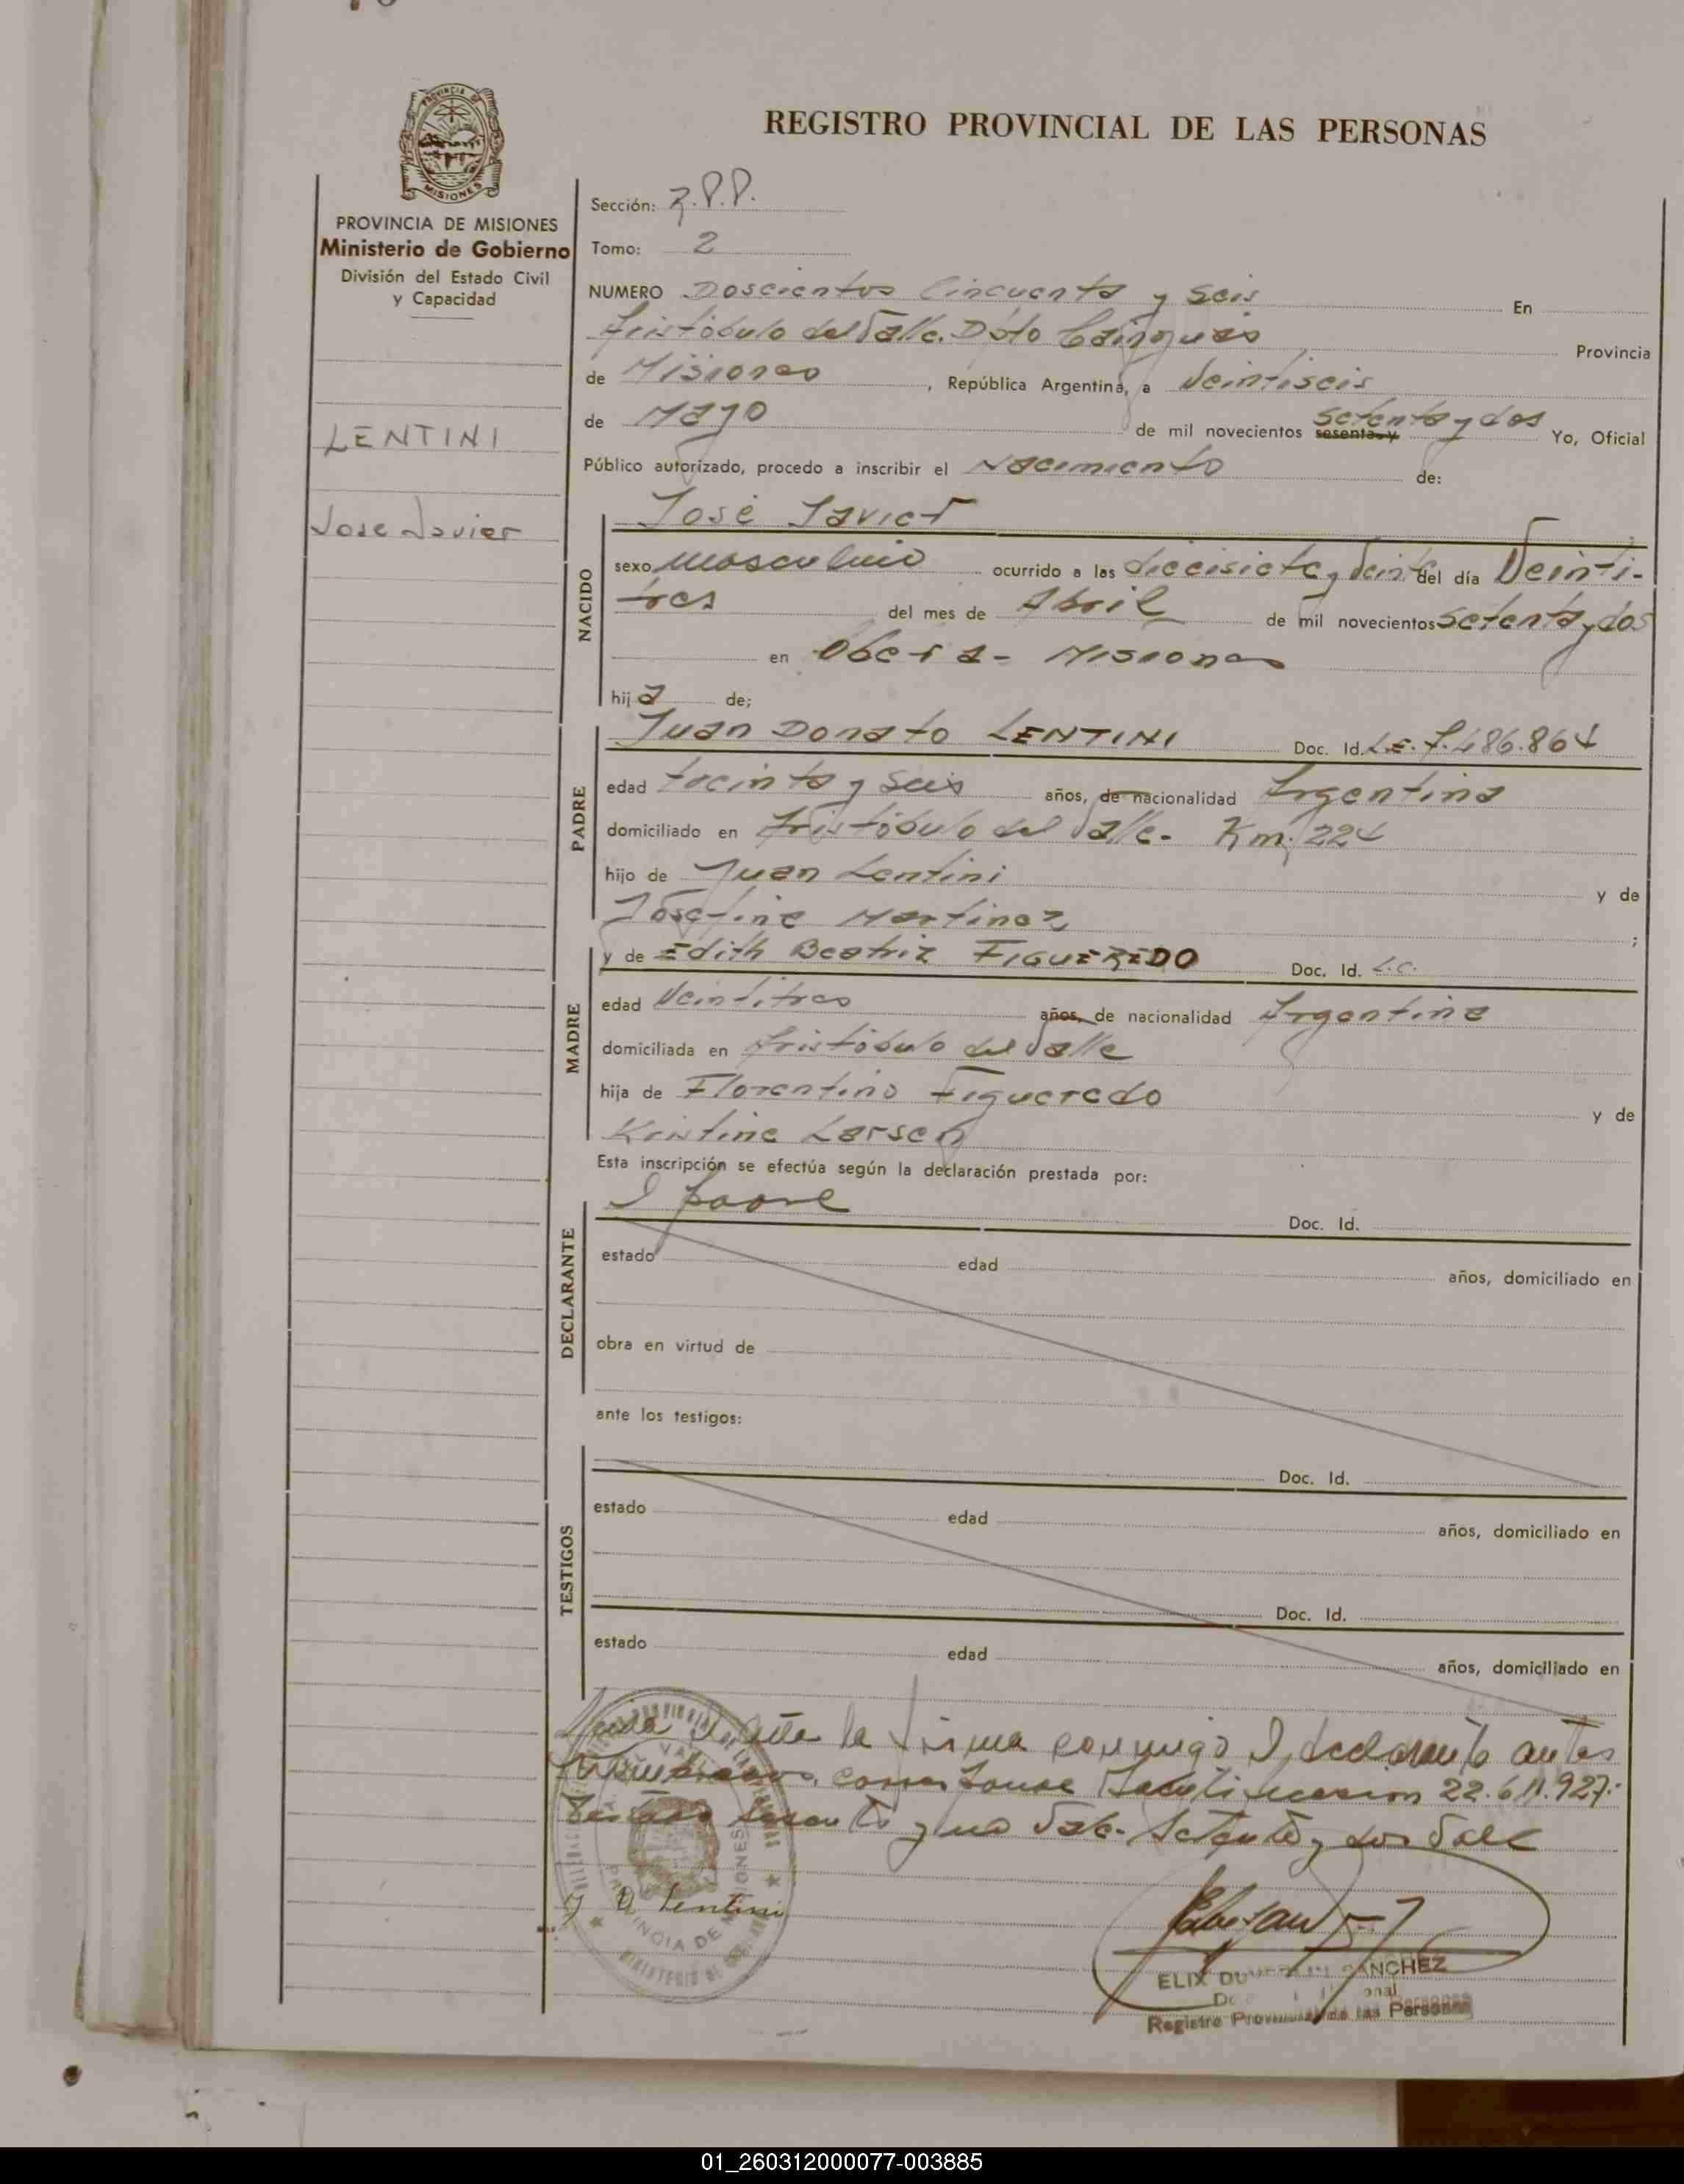 REGISTRO PROVINCIAL DE LAS PERSONAS
PROVINCIA DE MISIONES
PROVINCIA DE MISIONES
Ministerio de Gobierno
División del Estado Civil
y Capacidad
LENTINI
Jose Javier
Sección:
Tomo: 2
NUMERO Doscientos Cincuenta y Seis En
Aristóbulo del Valle. Dpto Cainguas Provincia
de Misiones, República Argentina, a Veintiseis
de Mayo de mil novecientos sesenta y setenta y dos Yo, Oficial
Público autorizado, procedo a inscribir el Nacimiento de:
NACIDO
José Javier
sexo masculino ocurrido a las diecisiete y veinte del día Veinti-
tres del mes de Abril de mil novecientos setenta y dos
en Obera - Misiones
hij de;
PADRE
Juan Donato LENTINI Doc. Id. L.E. 7.486.864
edad treinta y seis años, de nacionalidad Argentina
domiciliado en Aristóbulo del Valle. Km. 224
hijo de Juan Lentini y de
Josefina Martinez ;
MADRE
y de Edith Beatriz FIGUEREDO Doc. Id. L.C.
edad Veintitres años, de nacionalidad Argentina
domiciliada en Aristóbulo del Valle
hija de Florentino Figueredo y de
Kristine Larsen
Esta inscripción se efectúa según la declaración prestada por:
DECLARANTE
padre Doc. Id.
estado edad años, domiciliado en
obra en virtud de
ante los testigos:
TESTIGOS
Doc. Id.
estado edad años, domiciliado en
Doc. Id.
estado edad años, domiciliado en
la firma conmigo el declarante antes
22.611.927.
y no Vale. Setenta y dos Vale
J D Lentini
SANCHEZ
Registro Provincial de las Personas
01_260312000077-003885